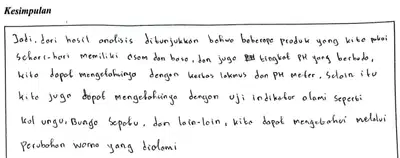 Kesimpulan
Jadi, dari hasil analisis ditunjukkan bahwa beberapa produk yang kita pakai
sehari-hari memiliki asam dan basa, dan juga tingkat PH yang berbeda,
kita dapat mengetahuinya dengan kertas lakmus dan PH meter, selain itu
kita juga dapat mengetahuinya dengan uji indikator alami seperti
kol ungu, Bunga Sepatu, dan lain-lain, kita dapat mengetahui melalui
Perubahan warna yang dialami